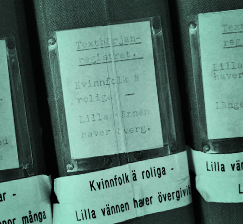 Textbörjan-
registret.
Kvinnfolk ä
roliga -
Lilla vännen
haver överg.
Kvinnfolk ä roliga -
Lilla vännen haver övergivit
Lilla
haver
Lilla vän
ar -
por många